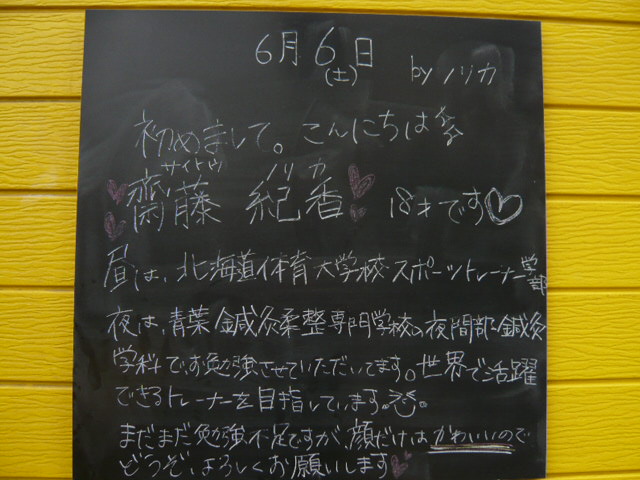 6月6日
(土)
by ノリカ
初めまして。こんにちは
サイトウ ノリカ
齋藤 紀香 18才です♡
昼は、北海道体育大学校スポーツトレーナー学部
夜は、青葉鍼灸柔整専門学校の夜間部鍼灸
学科でお勉強させていただいてます。世界で活躍
できるトレーナーを目指しています。
まだまだ勉強不足ですが、顔だけはかわいいので
どうぞよろしくお願いします